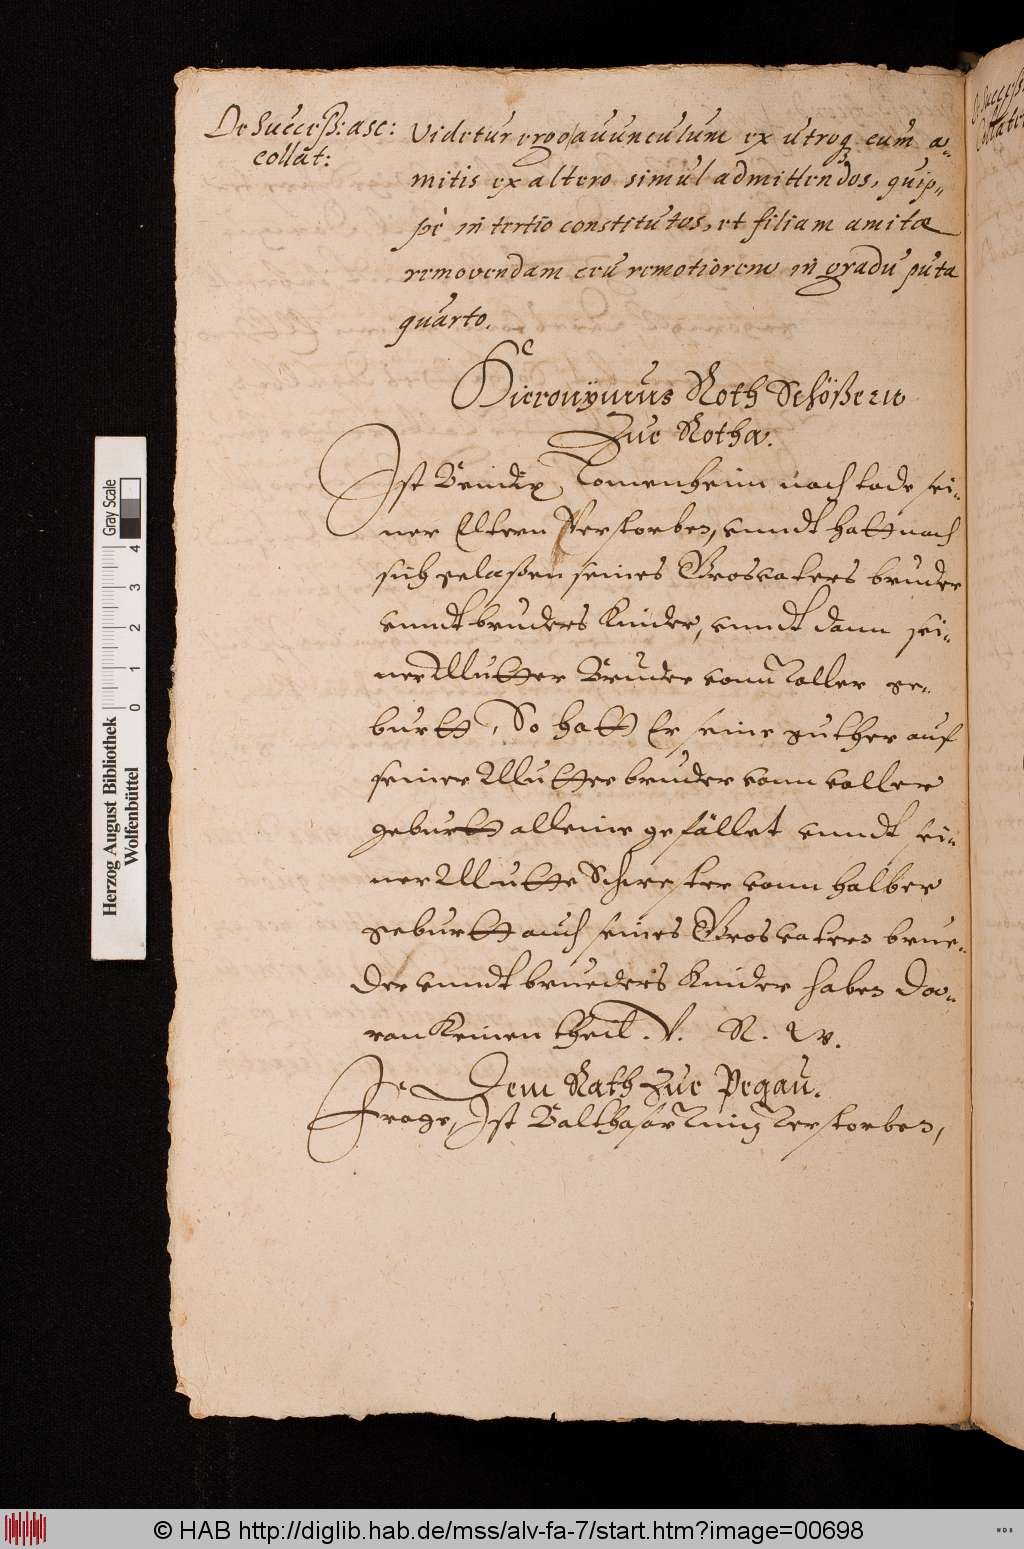 De Success: asc:
collat:
Videtur ergo avunculum ex utroq3 cum a-
mitis ex altero simul admittendos, quip-
pè in tertio constitutos, et filiam amitæ
removendam ceu remotiorem in gradu puta
quarto.
Hieronÿmus Roth Schößern
Zue Rotha.
Ist Bendix Tomenheim nach tode sei-
ner Eltern Verstorben, vnndt hatt nach
sich gelaßen seines Grosvaters bruder
vnndt bruders Kinder, vnndt dann sei-
ner Mutter Bruder vonn Voller ge-
burtt, So hatt Er seine guther auf
seiner Mutter bruder vonn voller
geburtt alleine gefället vnndt sei-
ner Mutter Schwester vonn halber
geburtt auch seines Grosvatern brue-
der vnndt brueders Kinder haben dor-
ran Keinen theil. V. R. W.
Dem Rath Zue Pegau.
Frage, Ist Balthasar Verstorben,
Herzog August Bibliothek
Wolfenbüttel
0 1 2 3 4
Gray Scale
© HAB http://diglib.hab.de/mss/alv-fa-7/start.htm?image=00698